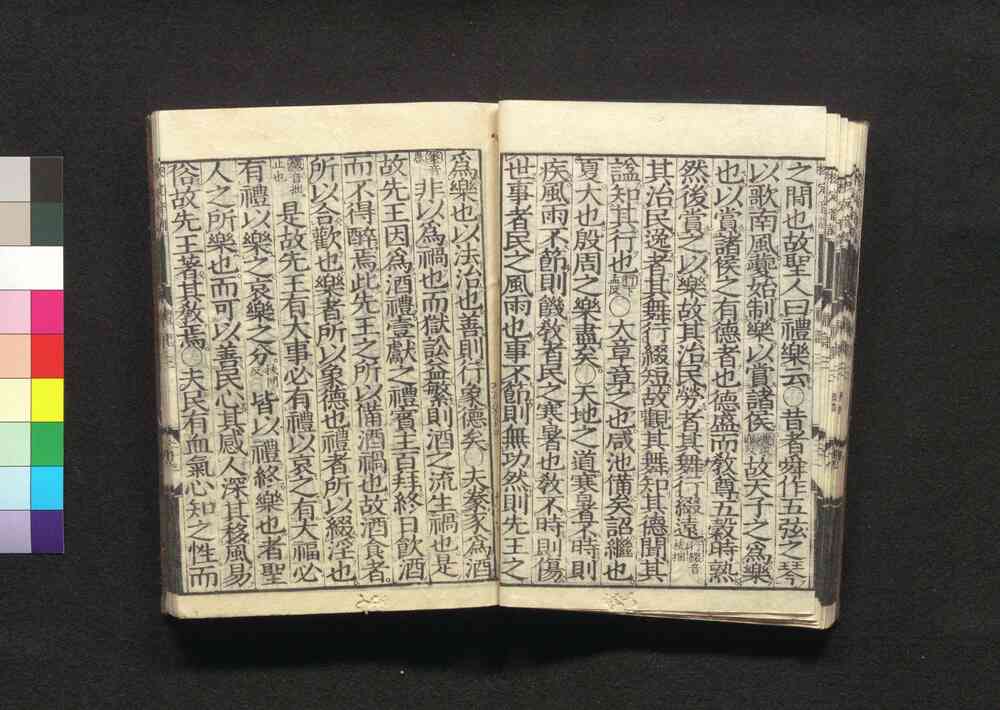 之間也故聖人曰禮樂云○昔者舜作五弦之琴
以歌南風夔始制樂以賞諸侯故天子之爲樂
也以賞諸侯之有德者也德盛而敎尊五穀時熟
然後賞之以樂故其治民勞者其舞行綴遠
其治民逸者其舞行綴短故觀其舞知其德聞其
諡知其行也○大章章之也咸池備矣韶繼也
夏大也殷周之樂盡矣○天地之道寒暑不時則
疾風雨不節則饑敎者民之寒暑也敎不時則傷
世事者民之風雨也事不節則無功然則先王之
爲樂也以法治也善則行象德矣○夫豢豕爲酒
非以爲禍也而獄訟益繁則酒之流生禍也是
故先王因爲酒禮壹獻之禮賓主百拜終日飮酒
而不得醉焉此先王之所以備酒禍也故酒食者
所以合歡也樂者所以象德也禮者所以綴淫也
綴音拙止也是故先王有大事必有禮以哀之有大福必
有禮以樂之哀樂之分皆以禮終樂也者聖
人之所樂也而可以善民心其感人深其移風易
俗故先王著其敎焉○夫民有血氣心知之性而